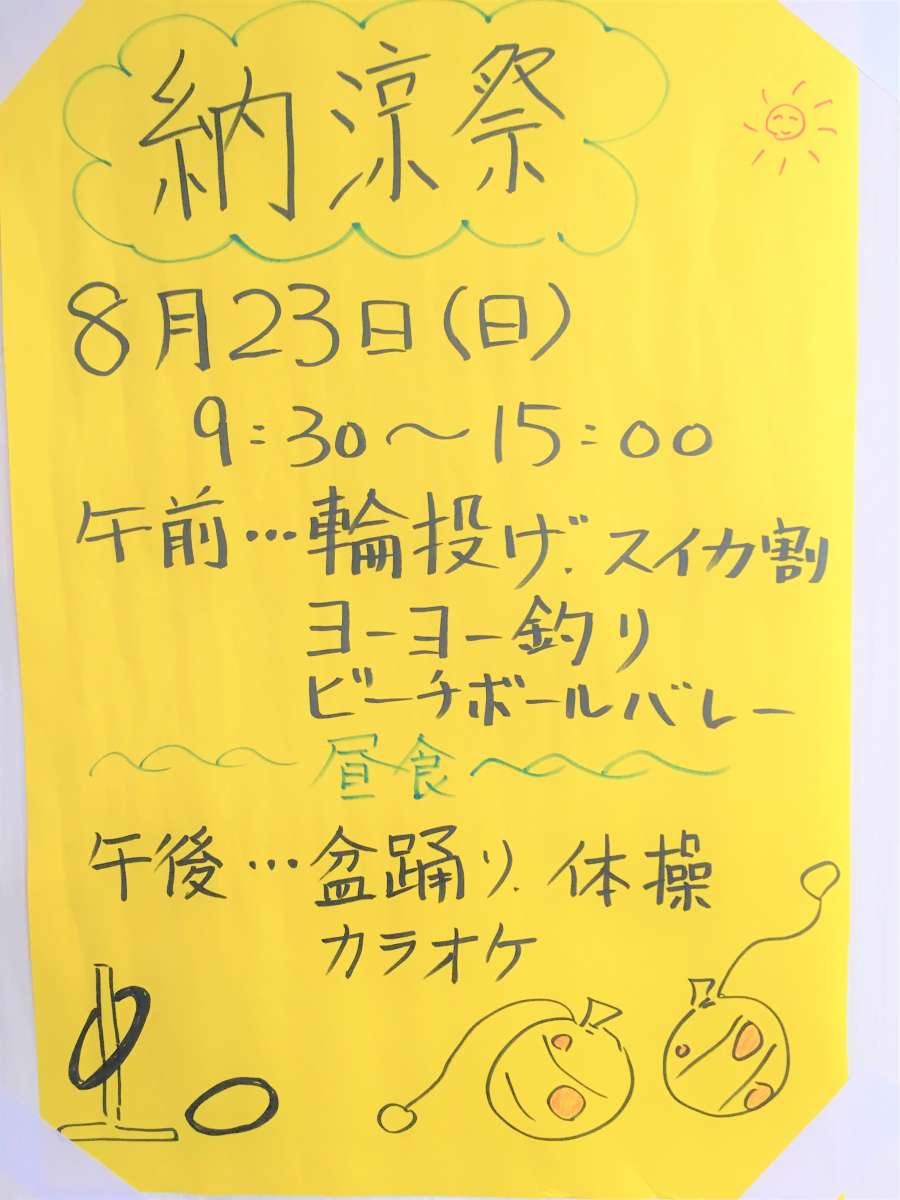 納涼祭
8月23日(日)
9:30〜15:00
午前…輪投げ.スイカ割
ヨーヨー釣り
ビーチボールバレー
〜〜〜昼食〜〜〜〜
午後…盆踊り.体操
カラオケ